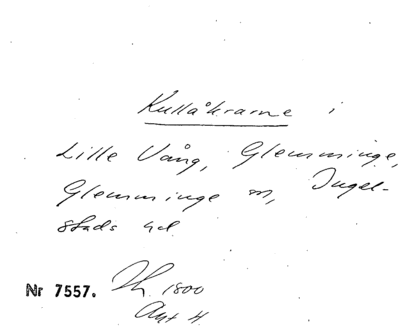 Kullåkrarne i
Lille Vång, Glemminge,
Glemminge sn, Ingel-
stads hd.
Nr 7557. Th. 1800
Akt 4.